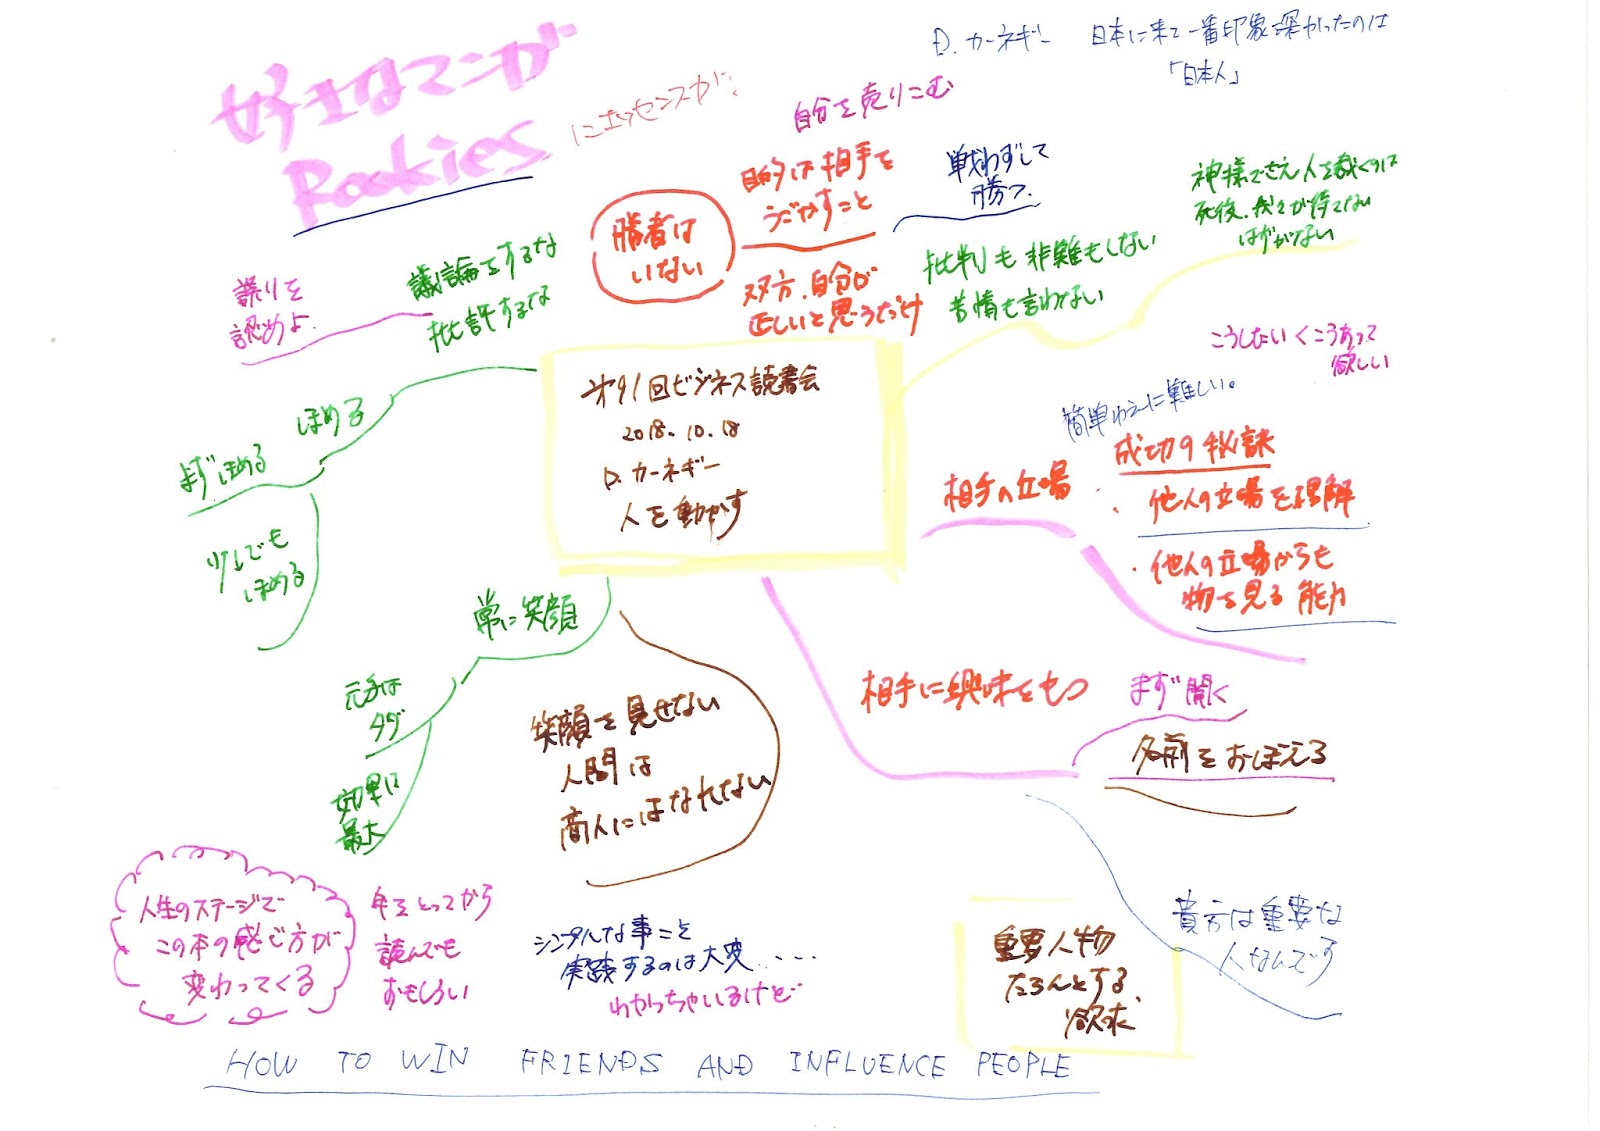 好きなマンガ
Rookies
にエッセンスが、
D. カーネギー 日本に来て一番印象深かったのは
「日本人」
自分を売りこむ
勝者は
いない
目的は相手を
うごかすこと
双方、自分が
正しいと思うだけ
戦わずして
勝つ、
批判も非難もしない
苦情も言わない
神様でさえ人を裁くのは
死後、我々が待てない
はずがない
誤りを
認めよ、
議論をするな
批評するな
こうしないくこうあって
欲しい
第91回ビジネス読書会
2018.10.18
D. カーネギー
人を動かす
ほめる
まずほめる
少しでも
ほめる
簡単ゆえに難しい。
相手の立場
成功の秘訣
・他人の立場を理解
・他人の立場からも
物を見る能力
常に笑顔
元手は
タダ
効果は
最大
笑顔を見せない
人間は
商人にはなれない
相手に興味をもつ
まず聞く
名前をおぼえる
貴方は重要な
人なんです
重要人物
たろんとする、
欲求
人生のステージで
この本の感じ方が
変わってくる
年をとってから
読んでも
おもしろい
シンプルな事こを
実践するのは大変....
わかっちゃいるけど
HOW TO WIN FRIENDS AND INFLUENCE PEOPLE